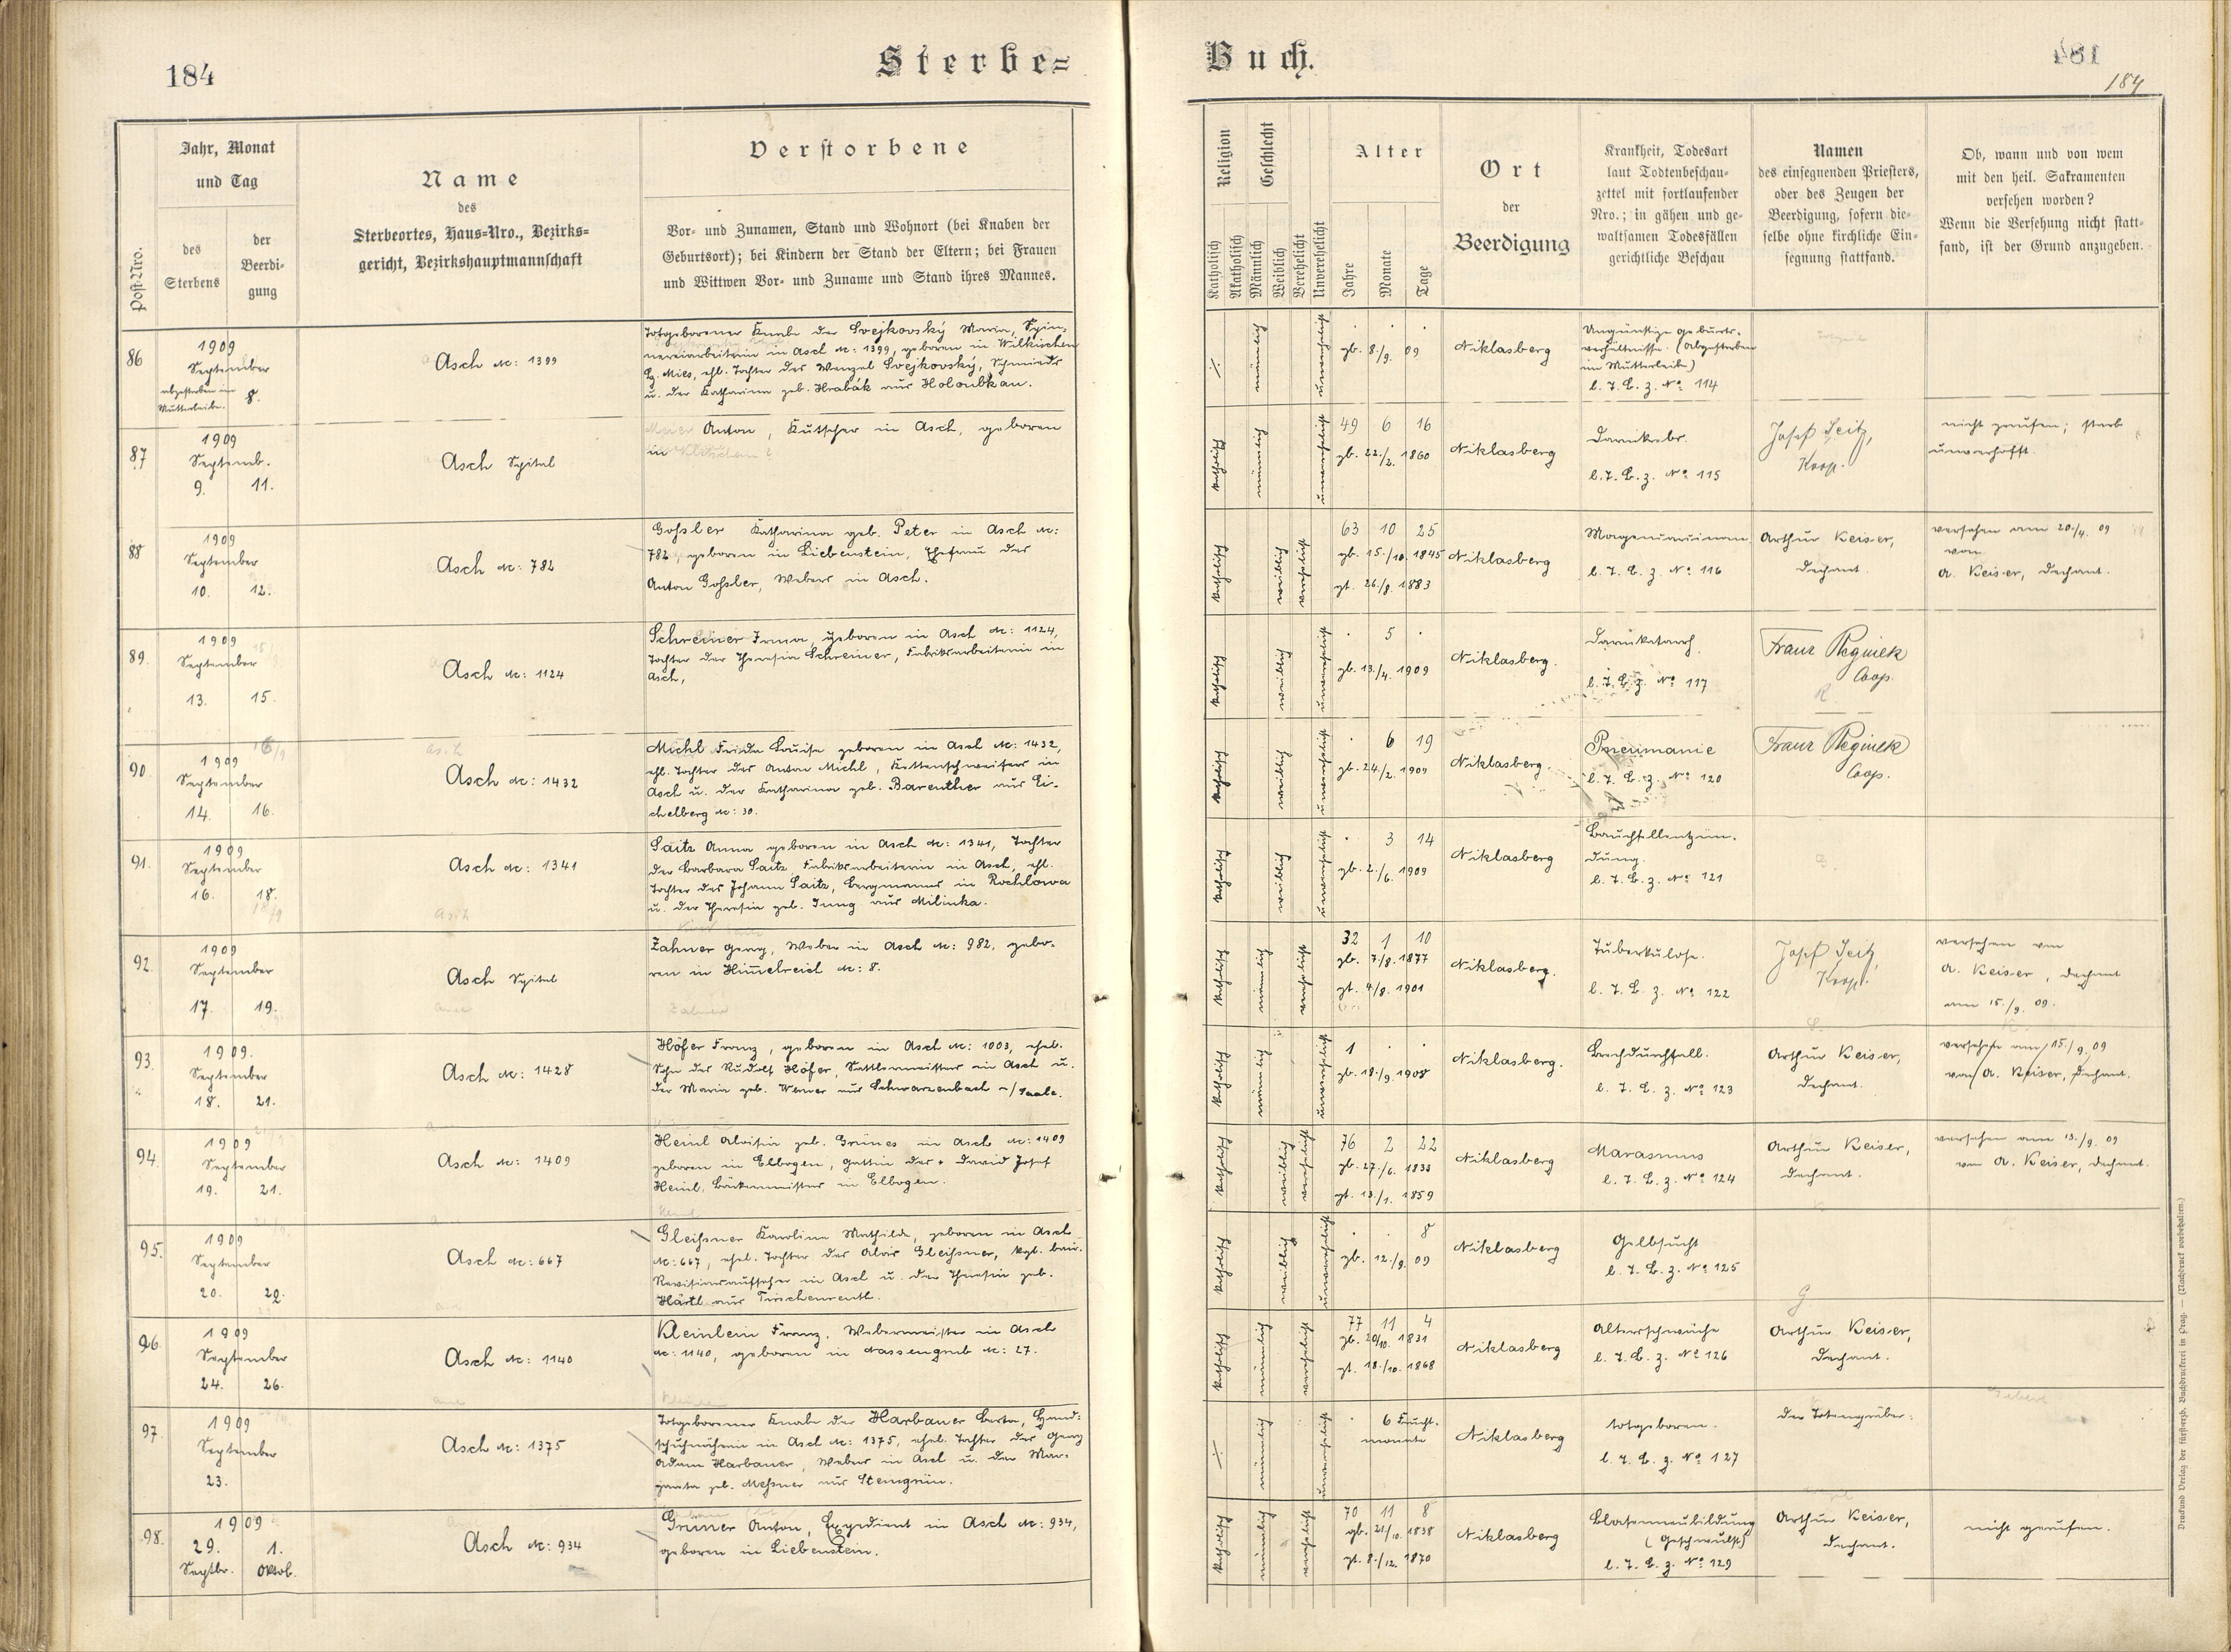 184
Sterbe=
Jahr, Monat
und Tag
Post-Nro.
des
Sterbens
der
Beerdi-
gung
Name
des
Sterbeortes, Haus-Nro., Bezirks-
gericht, Bezirkshauptmannschaft
Verstorbene
Vor- und Zunamen, Stand und Wohnort (bei Knaben der
Geburtsort); bei Kindern der Stand der Eltern; bei Frauen
und Wittwen Vor- und Zuname und Stand ihres Mannes.
86
1909
September
abgestorben im
Mutterleibe.
8.
Asch N: 1399
Totgeborener Knabe der Svejkovský Maria, Spin-
nereiarbeiterin in Asch N: 1399, geboren in Wilkischen
Bz. Mies, ehl. Tochter des Wenzel Svejkovský, Schmieds
u. der Katharina geb. Hrabák aus Holoubkau.
87
1909
Septemb.
9. 11.
Asch Spital
Meier Anton, Kutscher in Asch, geboren
in
88
1909
September
10. 12.
Asch N: 782
Gossler Katharina geb. Peter in Asch N:
782, geboren in Liebenstein, Ehefrau des
Anton Gossler, Webers in Asch.
89.
1909
September
13. 15.
Asch N: 1124
Schreiner Irma, geboren in Asch N: 1124,
Tochter der Theresia Schreiner, Fabriksarbeiterin in
Asch,
90.
1909
September
14. 16.
Asch N: 1432
Michl Frieda Louise geboren in Asch N: 1432,
ehl. Tochter des Anton Michl, Kettenschweifers in
Asch u. der Katharina geb. Bareuther aus Ei-
chelberg N: 30.
91.
1909
September
16. 18.
Asch N: 1341
Saitz Anna geboren in Asch N: 1341, Tochter
der Barbara Saitz Fabriksarbeiterin in Asch, ehl.
Tochter des Johann Saitz, Bergmanns in Rochlowa
u. der Theresia geb. Jung aus Milinka.
92.
1909
September
17. 19.
Asch Spital
Zahner Georg, Weber in Asch N: 982, gebo-
ren in Himmelreich N: 8.
93.
1909.
September
18. 21.
Asch N: 1428
Höfer Franz, geboren in Asch N: 1003, ehel.
Sohn des Rudolf Höfer, Sattlermeisters in Asch u.
der Maria geb. Werner aus Schwarzenbach a/Saale.
94.
1909
September
19. 21.
Asch N: 1409
Heinl Aloisia geb. Grünes in Asch N: 1409
geboren in Elbogen, Gattin des + David Josef
Heinl, Bäckermeisters in Elbogen.
95.
1909
September
20. 22.
Asch N: 667
Gleissner Karolina Mathilde, geboren in Asch
N: 667, ehel. Tochter des Alois Gleissner, kgl. bair.
Revisionsaufseher in Asch u. der Theresia geb.
Härtl aus Tirschenreutl.
96.
1909
September
24. 26.
Asch N: 1140
Kleinlein Franz, Webermeister in Asch
N: 1140, geboren in Nassengrub N: 27.
97.
1909
September
23.
Asch N: 1375
Totgeborener Knabe der Harbauer Berta, Hand-
schuhnäherin in Asch N: 1375, ehel. Tochter des Georg
Adam Harbauer, Webers in Asch u. der Mar-
gareta geb. Messner aus Steingrün.
98.
1909
29. 1.
Septbr. Oktob.
Asch N: 934
Grüner Anton, Expedient in Asch N: 934,
geboren in Liebenstein.
Buch.
184
Religion
Katholisch
Akatholisch
Geschlecht
Männlich
Weiblich
Verehelicht
Unverehelicht
Alter
Jahre
Monate
Tage
Ort
der
Beerdigung
Krankheit, Todesart
laut Todtenbeschau-
zettel mit fortlaufender
Nro.; in gähen und ge-
waltsamen Todesfällen
gerichtliche Beschau
Namen
des einsegnenden Priesters,
oder des Zeugen der
Beerdigung, sofern die-
selbe ohne kirchliche Ein-
segnung stattfand.
Ob, wann und von wem
mit den heil. Sakramenten
versehen worden?
Wenn die Versehung nicht statt-
fand, ist der Grund anzugeben.
männlich
unverehelicht
gb. 8/9. 09
Niklasberg
Ungünstige Geburts-
verhältnisse. (Abgestorben
im Mutterleibe)
l. T. B. z. No 114
katholisch
männlich
unverehelicht
49 6 16
gb. 22./2. 1860
Niklasberg
Darmkrebs.
l. T. B. z. No 115
Josef Seitz,
Koop.
nicht gerufen; starb
unverhofft.
katholisch
weiblich
verehelicht
63 10 25
gb. 15./10. 1845
gt. 26./8. 1883
Niklasberg
l. T. B. z. No 116
Arthur Keiser,
Dechant.
versehen am 20./4. 09
von
A. Keiser, Dechant.
katholisch
weiblich
unverehelicht
5
gb. 13./4. 1909
Niklasberg.
Darmkatarrh.
l. T. B. z. No 117
Franz Reginek
Coop.
katholisch
weiblich
unverehelicht
6 19
gb. 24/2. 1909
Niklasberg.
Pneumanie
l. T. B. z. No 120
Franz Reginek
Coop.
katholisch
weiblich
unverehelicht
3 14
gb. 2./6. 1909
Niklasberg
Bauchfellentzün-
dung.
l. T. B. z. No 121
katholisch
männlich
verehelicht
32 1 10
gb. 7/8. 1877
gt. 4/8. 1901
Niklasberg.
Tuberkulose.
l. T. B. z. No 122
Josef Seitz,
Koop.
versehen von
A. Keiser, Dechant
am 15./9. 09.
katholisch
männlich
unverehelicht
1
gb. 18./9. 1908
Niklasberg.
Brechdurchfall.
l. T. B. z. No 123
Arthur Keiser,
Dechant.
versehen am 15./9. 09
von A. Keiser, Dechant.
katholisch
weiblich
verehelicht
76 2 22
gb. 27./6. 1833
gt. 13./1. 1859
Niklasberg
Marasmus
l. T. B. z. No 124
Arthur Keiser,
Dechant.
versehen am 13./9. 09
von A. Keiser, Dechant.
katholisch
weiblich
unverehelicht
8
gb. 12./9. 09
Niklasberg
Gelbsucht
l. T. B. z. No 125
katholisch
männlich
verehelicht
77 11 4
gb. 20/10. 1831
gt. 18./10. 1868
Niklasberg
Altersschwäche
l. T. B. z. No 126
Arthur Keiser,
Dechant.
männlich
unverehelicht
6 Frucht-
monate
Niklasberg
totgeboren.
l. T. B. z. No 127
der Totengräber.
katholisch
männlich
verehelicht
70 11 8
gb. 21/10. 1838
gt. 8./12. 1870
Niklasberg
Blasenneubildung
(Geschwulst)
l. T. B. z. No 129
Arthur Keiser,
Dechant.
nicht gerufen.
Druck und Verlag der fürsterzb. Buchdruckerei in Prag. — (Nachdruck vorbehalten.)